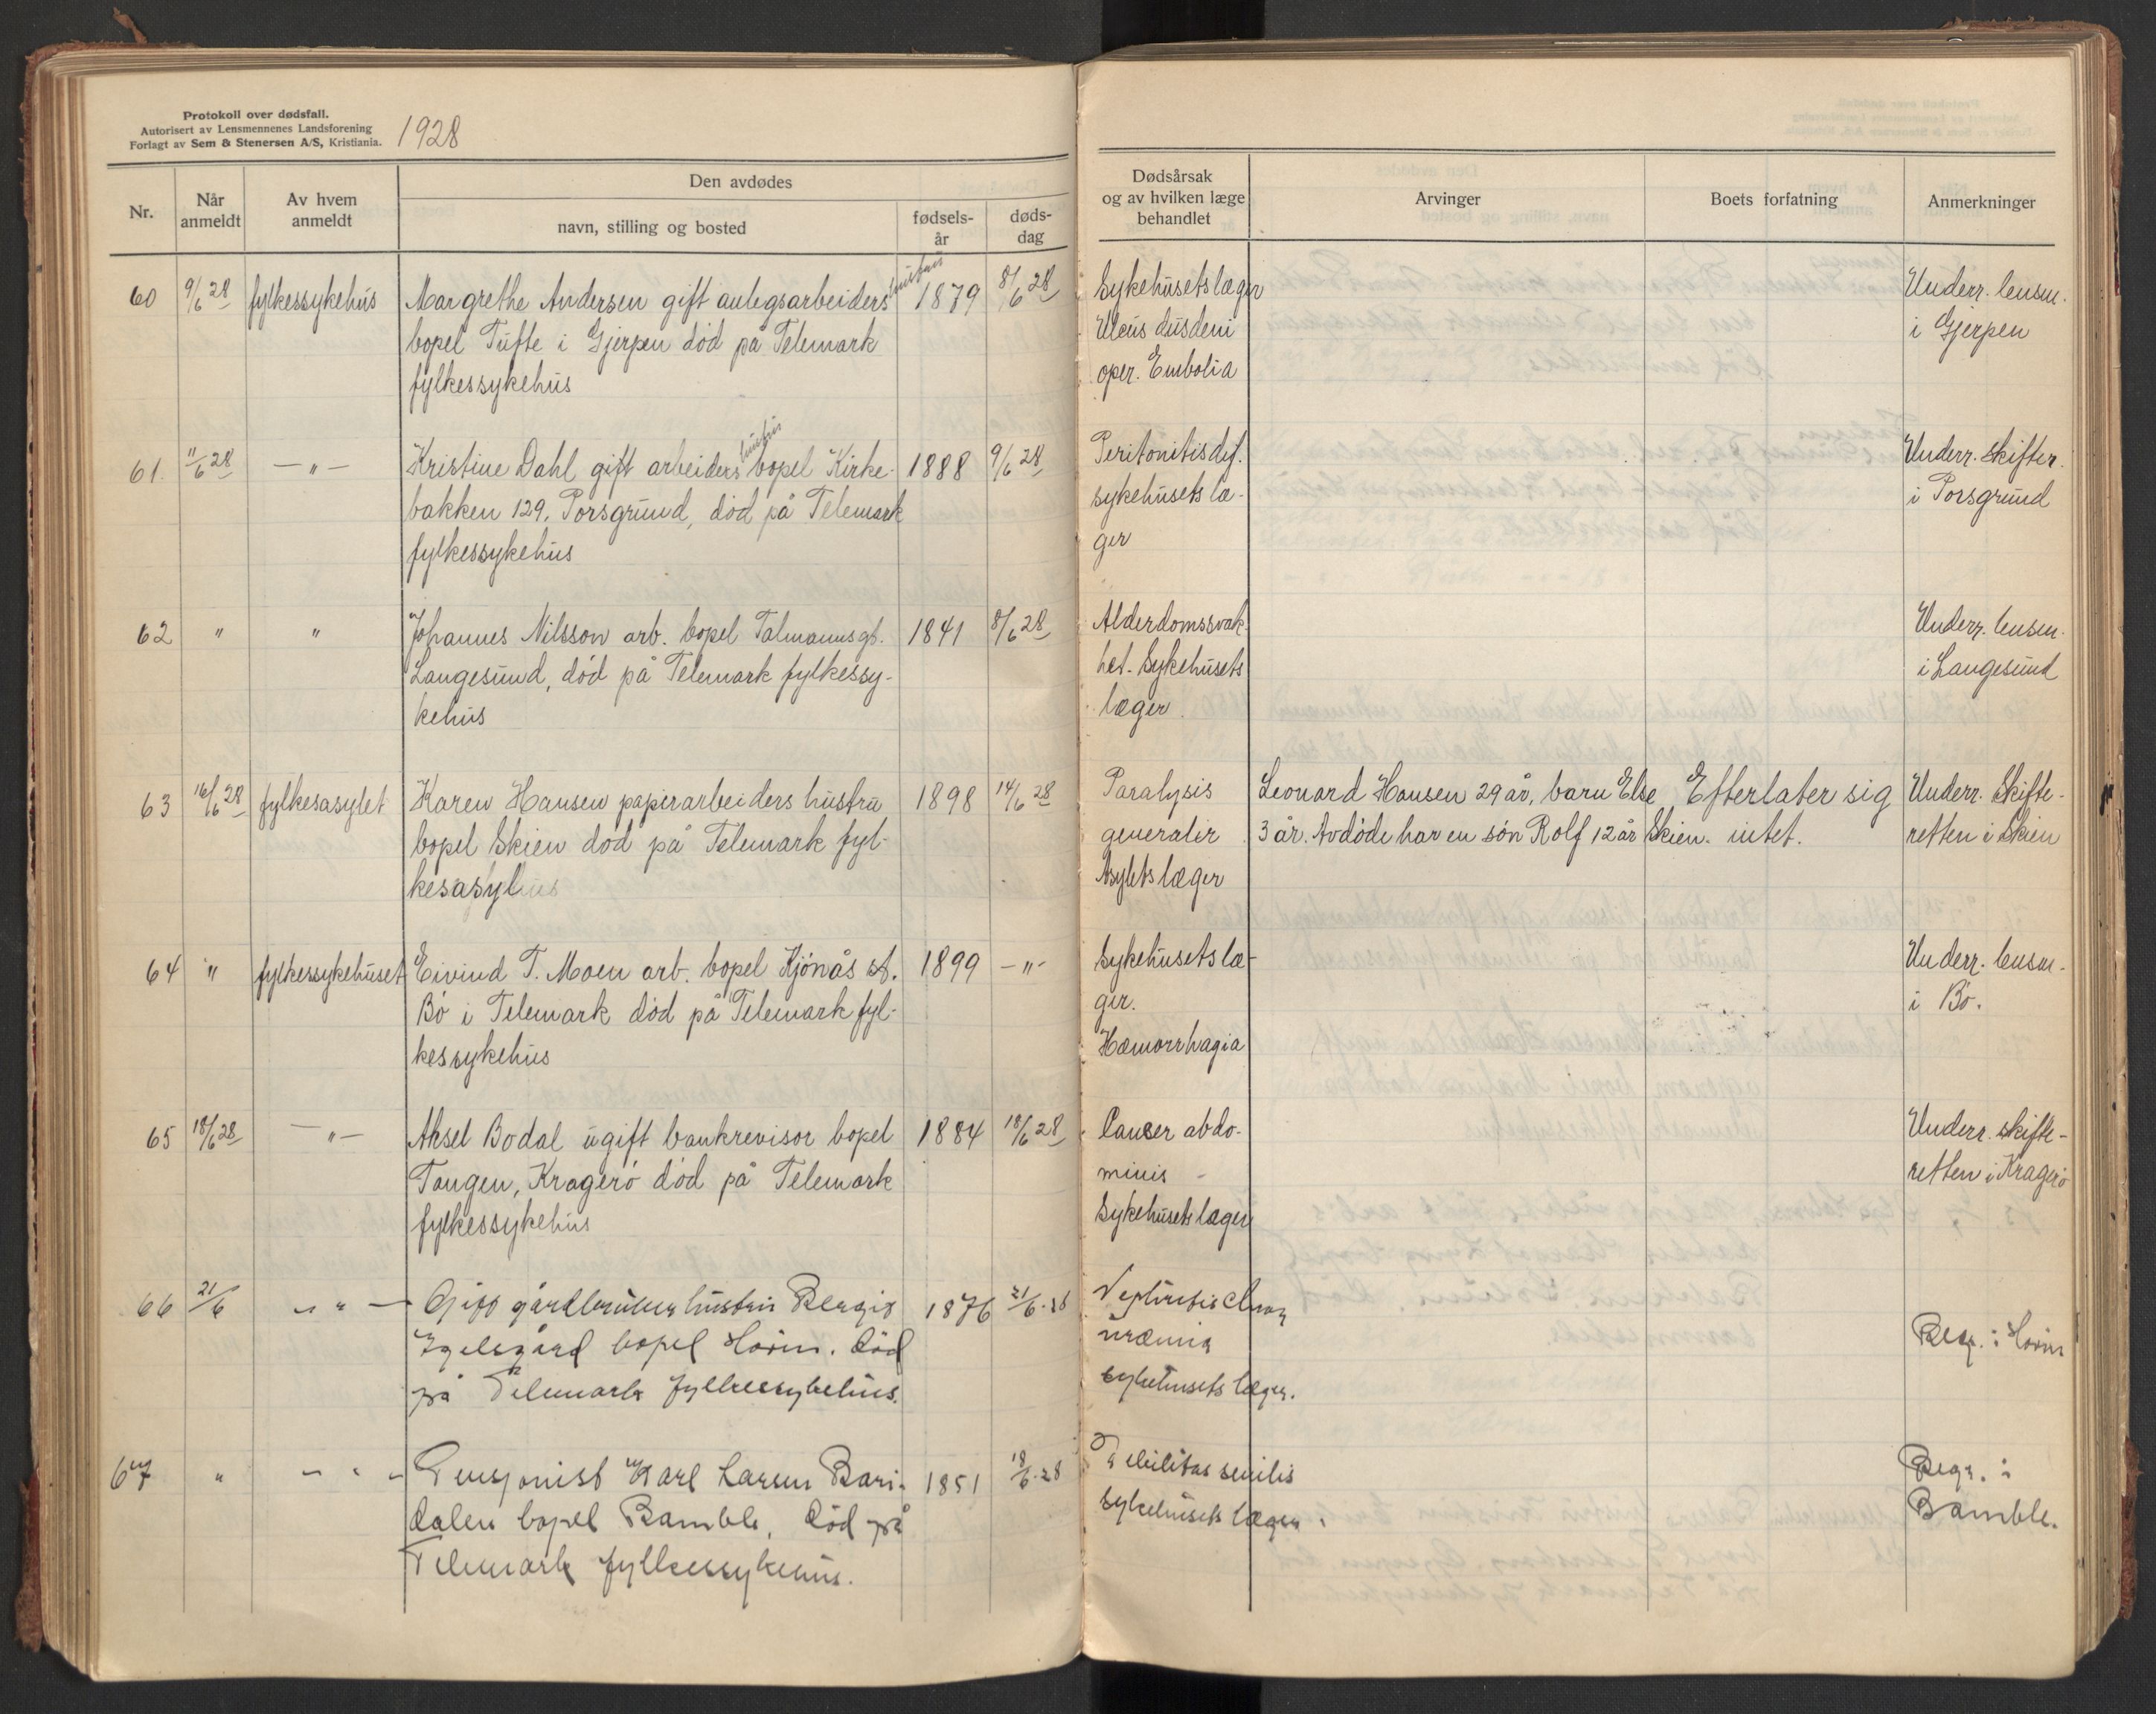 Protokoll over dødsfall.
Autorisert av Lensmennenes Landsforening
Forlagt av Sem & Stenersen A/S, Kristiania.
1928
Nr.
Når anmeldt
Av hvem anmeldt
Den avdødes
navn, stilling og bosted
fødsels-år
døds-dag
Dødsårsak og av hvilken læge behandlet
Arvinger
Boets forfatning
Anmerkninger
60 9/6 28 fylkessykehus Margrethe Andersen gift anlegsarbeiders hustru 1879 8/6 28 Sykehusets læger Underr. lensm.
bopel Tufte i Gjerpen död på Telemark Ulcus dusdeni i Gjerpen
fylkessykehus oper. Embolia
61. 11/6 28 —"— Kristine Dahl gift arbeiders hustru bopel Kirke- 1888 9/6 28 Peritonitis dif. Underr. Skifter.
bakken 129, Porsgrund, död på Telemark sykehusets læ- i Porsgrund
fylkessykehus ger
62 " " Johannes Nilsson arb. bopel Talmannsgt. 1841 8/6 28 Alderdomssvak- Underr. lensm.
Langesund, död på Telemark fylkessy- het. Sykehusets i Langesund
kehus læger
63 16/6 28 fylkesasylet Karen Hansen papirarbeiders hustru 1898 14/6 28 Paralysis Leonard Hansen 29 år, barn Else Efterlater sig Underr. Skifte-
bopel Skien död på Telemark fyl- generalir 3 år. Avdöde har en sön Rolf 12 år Skien. intet. retten i Skien
kesasyl Asylets læger
64 " fylkessykehuset Eivind T. Moen arb. bopel Kjönås st. 1899 —"— Sykehusets læ- Underr. lensm.
Bö i Telemark död på Telemark fyl- ger. i Bö.
kessykehus Hæmorrhagia
65 18/6 28 —"— Aksel Bodal ugift bankrevisor bopel 1884 18/6 28 Cancer abdo- Underr. skifte-
Tangen, Kragerö död på Telemark minis retten i Kragerö
fylkessykehus Sykehusets læger
66 21/6 —"— Gift gårdbruker hustru Bergit 1876 21/6.28 Nephritis chron
bopel Hovin. död uræmia i Hovin
på Telemark fylkessykehus. sykehusets læger.
67 " —"— Pensjonist Karl Larsen Bari- 1851 18/6.28 Debilitas senilis Begr. i
dalen bopel Bamble, död på sykehusets læger. Bamble.
Telemark fylkessykehus.